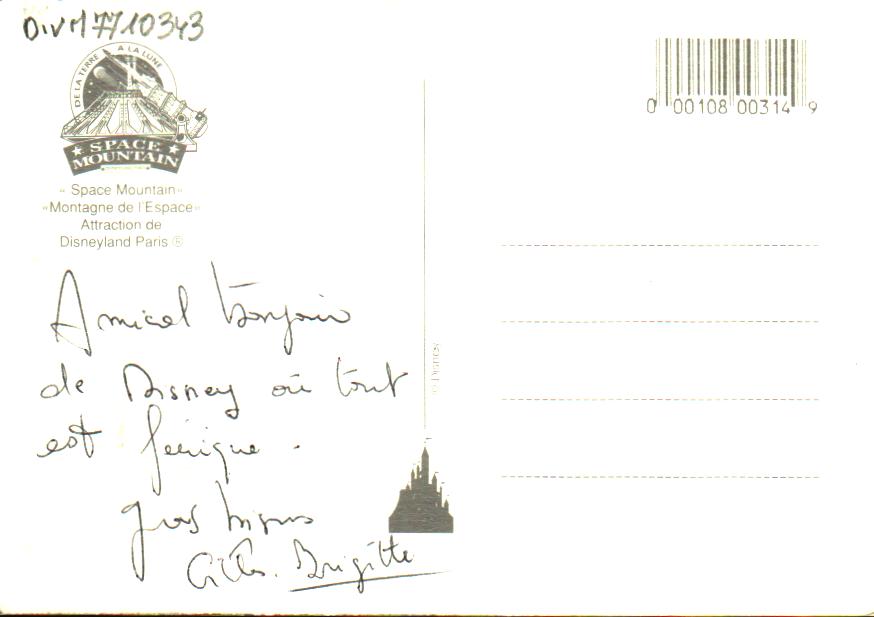 DIVM7710343
DE LA TERRE A LA LUNE
SPACE
MOUNTAIN
« Space Mountain»
«Montagne de l'Espace»
Attraction de
Disneyland Paris ®
Amical bonjour
de Disney où tout
est féérique.
gros bisous
Gilles. Brigitte
© DISNEY
0 00108 00314 9